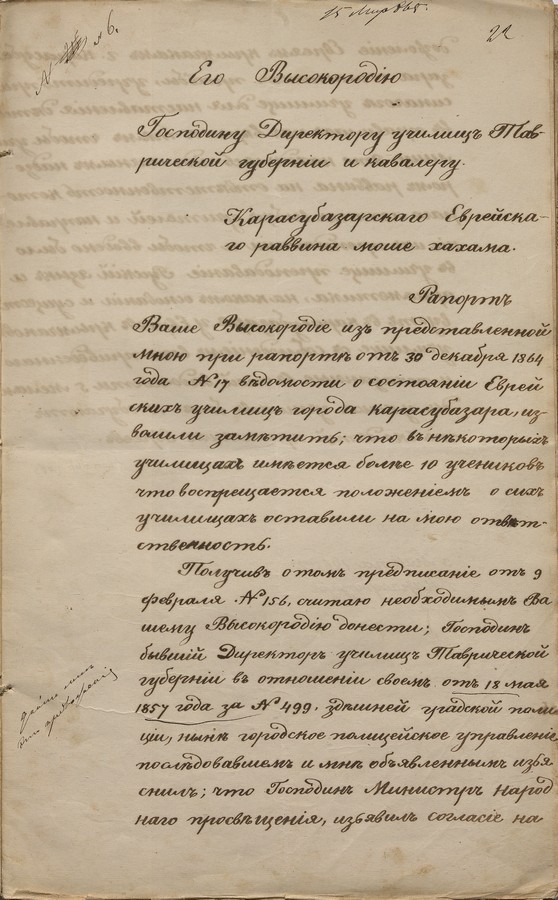 15 Марта 65.
22
№ 6.
Его Высокородію
Господину Директору училищъ Тав-
рической губерніи и кавалеру.
Карасубазарскаго Еврейска-
го раввина моше хахама.
Рапортъ
Ваше Высокородіе изъ представленной
мною при рапортѣ отъ 30 декабря 1864
года № 17 вѣдомости о состояніи Еврей
скихъ училищъ города карасубазара, из-
волили замѣтить; что въ нѣкоторыхъ
училищахъ имѣется болѣе 10 учениковъ
что воспрещается положеніемъ о сихъ
училищахъ оставили на мою отвѣт-
ственность.
Получивъ о томъ предписаніе отъ 9
февраля № 156, считаю необходимымъ Ва
шему Высокородію донести; Господинъ
бывшій Директоръ училищъ Таврической
губерніи въ отношеніи своемъ отъ 18 мая
1857 года за № 499. здѣшней градской поли
ціи, нынѣ городское полицейское управленіе
послѣдовавшемъ и мнѣ объявленнымъ изъя
снилъ; что Господинъ Министръ народ
наго просвѣщенія, изъявилъ согласіе на